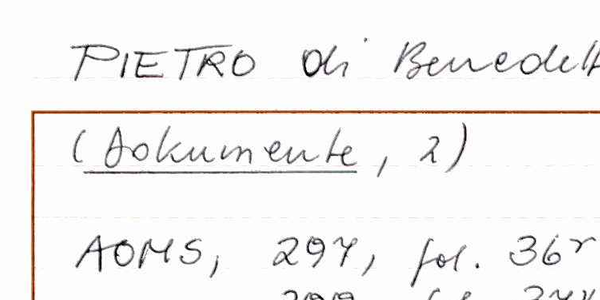 PIETRO di Benedett
(Dokumente, 2)
AOMS, 297, fol. 36r